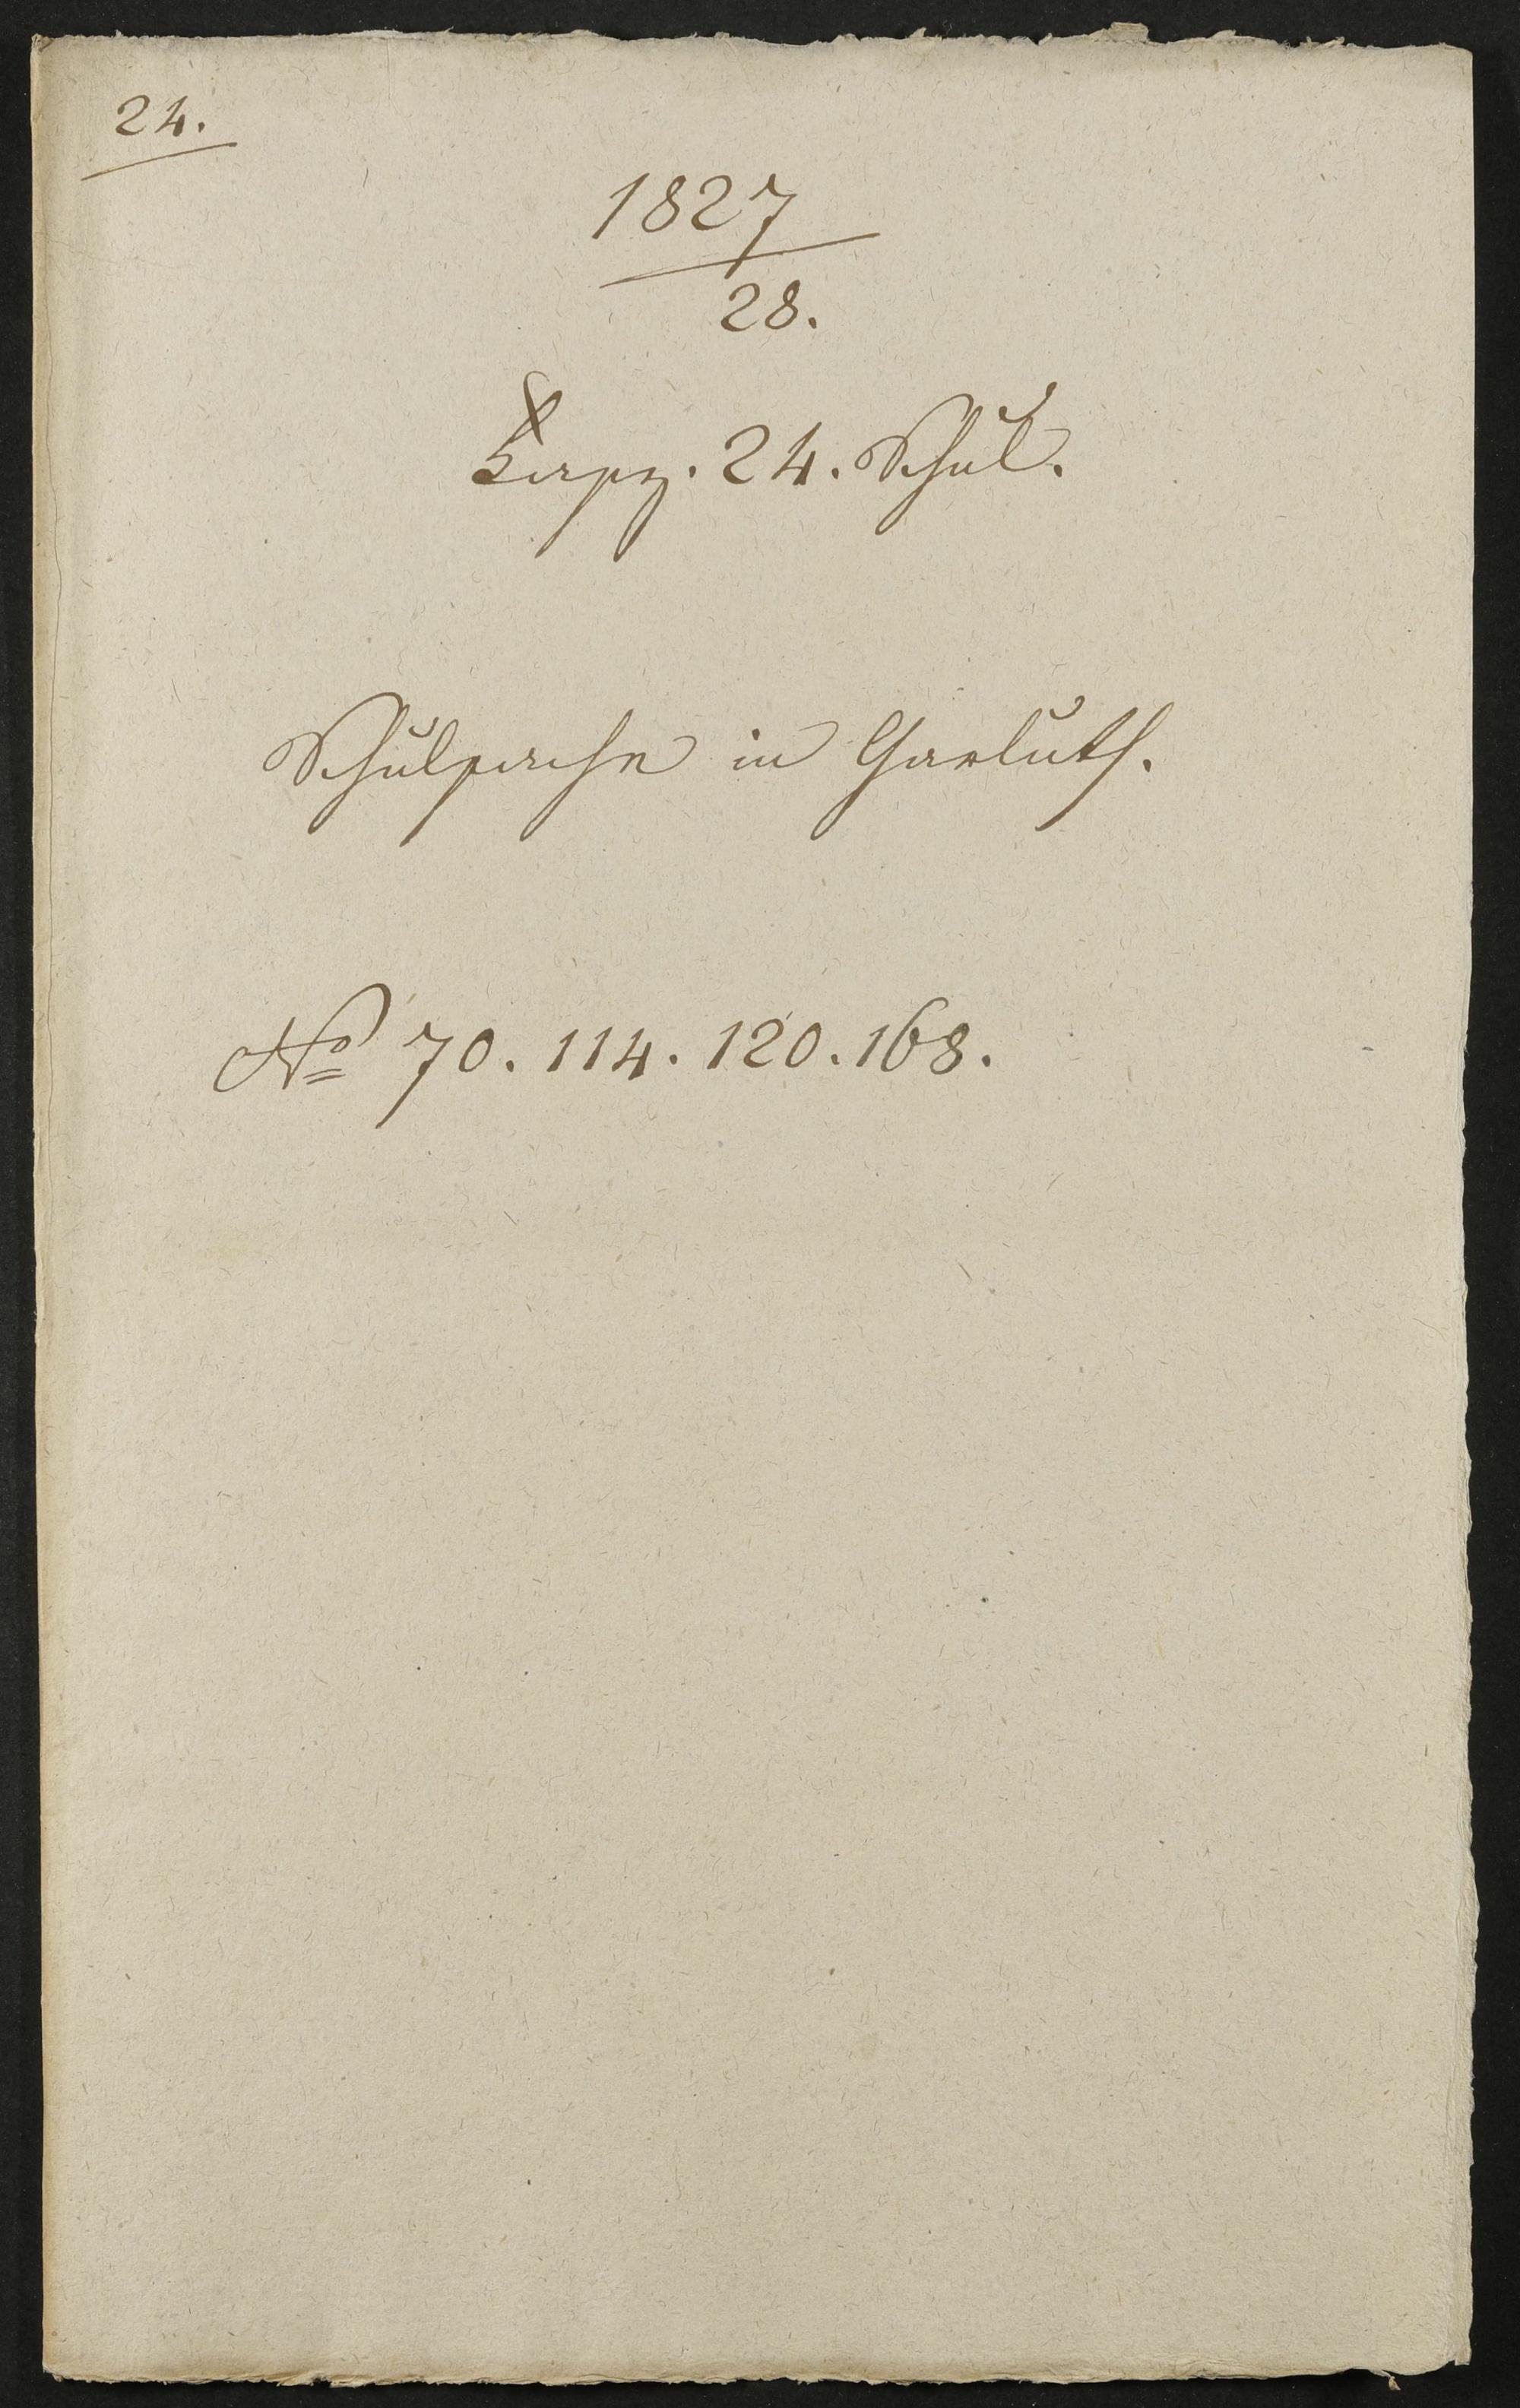 24.
1827
28.
Fasz. 24. Schul.
Schulsache in Garluth.
No 70. 114. 120. 168.